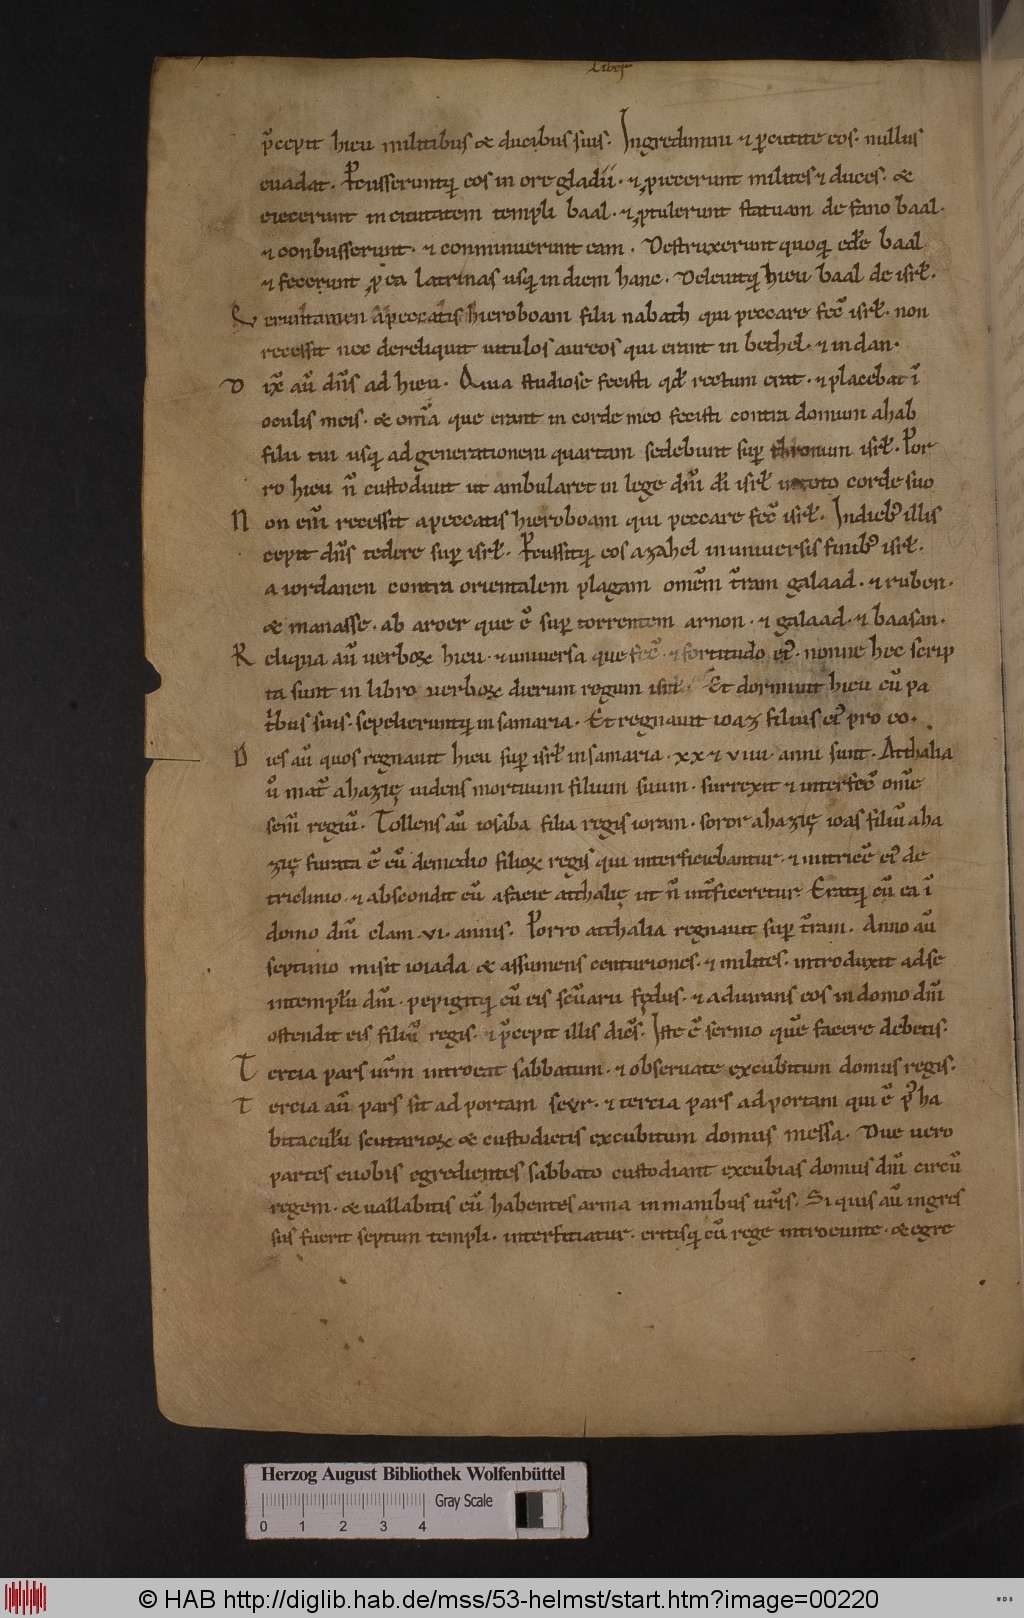 Liber
p̄cepit hieu militibus & ducibus suis. Ingredimini ⁊ p̱cutite eos. nullus
euadat. P̱cusseruntq; eos in ore gladii. ⁊ ꝓiecerunt milites ⁊ duces. &
eiecerunt in ciuitatem templi baal. ⁊ ꝓtulerunt statuam de fano baal.
⁊ conbusserunt. ⁊ conminuerunt eam. Destruxerunt quoq; edē baal
⁊ fecerunt ꝓ ea latrinas usq; in diem hanc. Deleuitq; hieu baal de isrl̄.
Veruntamen a peccatis hieroboam filii nabath qui peccare fec̄ isrl̄. non
recessit nec dereliquit uitulos aureos qui erant in bethel. ⁊ in dan.
Dix̄ au̅ dn̄s ad hieu. Quia studiose fecisti qd̄ rectum erat. ⁊ placebat ī
oculis meis. & om̄a que erant in corde meo fecisti contra domum ahab
filii tui usq; ad generationem quartam sedebunt sup̱ thronum isrl̄. Por
ro hieu n̄ custodiuit ut ambularet in lege dn̄i dī isrl̄ in toto corde suo
Non eni̅ recessit a peccatis hieroboam qui peccare fec̄ isrl̄. In dieb; illis
cepit dn̄s tedere sup̱ isrl̄. P̱cussitq; eos azahel in uniuersis finib; isrl̄.
a iordanen contra orientalem plagam omē̄m t̄ram galaad. ⁊ ruben.
& manasse. ab aroer que ē sup̱ torrentem arnon. ⁊ galaad. ⁊ baasan.
Reliqua au̅ uerboꝝ hieu. ⁊ uniuersa que fec̄. ⁊ fortitudo ei᷒. nonne hec scrip
ta sunt in libro uerboꝝ dierum regum isrl̄. Et dormiuit hieu cū pa
t̄bus suis. sepelieruntq; in samaria. Et regnauit ioaz filius ei᷒ pro eo.
Dies au̅ quos regnauit hieu sup̱ isrl̄ in samaria. xx ⁊ viii. anni sunt. Atthalia
u̅ mat̄ ahazię uidens mortuum filium suum. surrexit ⁊ interfec̄ omē
sem̄ regiū. Tollens au̅ iosaba filia regis ioram. soror ahazię ioas filiū aha
zię furata ē eū de medio filioꝝ regis qui interficiebantur. ⁊ nutricē ei᷒ de
triclinio. ⁊ abscondit eū a facie atthalię ut n̄ int̄ficeretur. Eratq; cū ea ī
domo dn̄i clam .vi. annis. Porro atthalia regnauit sup̱ t̄ram. Anno au̅
septimo misit ioiada & assumens centuriones. ⁊ milites. introduxit ad se
in templū dn̄i. pepigitq; cū eis fędus. ⁊ adiurans eos in domo dn̄i
ostendit eis filiū regis. ⁊ p̄cepit illis dic̄s. Iste ē sermo quē facere debetis.
Tercia pars ur̄m introeat sabbatum. ⁊ obseruate excubitum domus regis.
Tercia au̅ pars sit ad portam seyr. ⁊ tercia pars ad portam qui ē p̄ ha
bitaculū scutarioꝝ & custodietis excubitum domus messa. Due uero
partes e uobis egredientes sabbato custodiant excubias domus dn̄i circū
regem. & uallabitis eū habentes arma in manibus ur̄is. Si quis au̅ ingres
sus fuerit septum templi. interficiatur. eritisq; cū rege introeunte. & egre
Herzog August Bibliothek Wolfenbüttel
Gray Scale
0 1 2 3 4
© HAB http://diglib.hab.de/mss/53-helmst/start.htm?image=00220
WDB